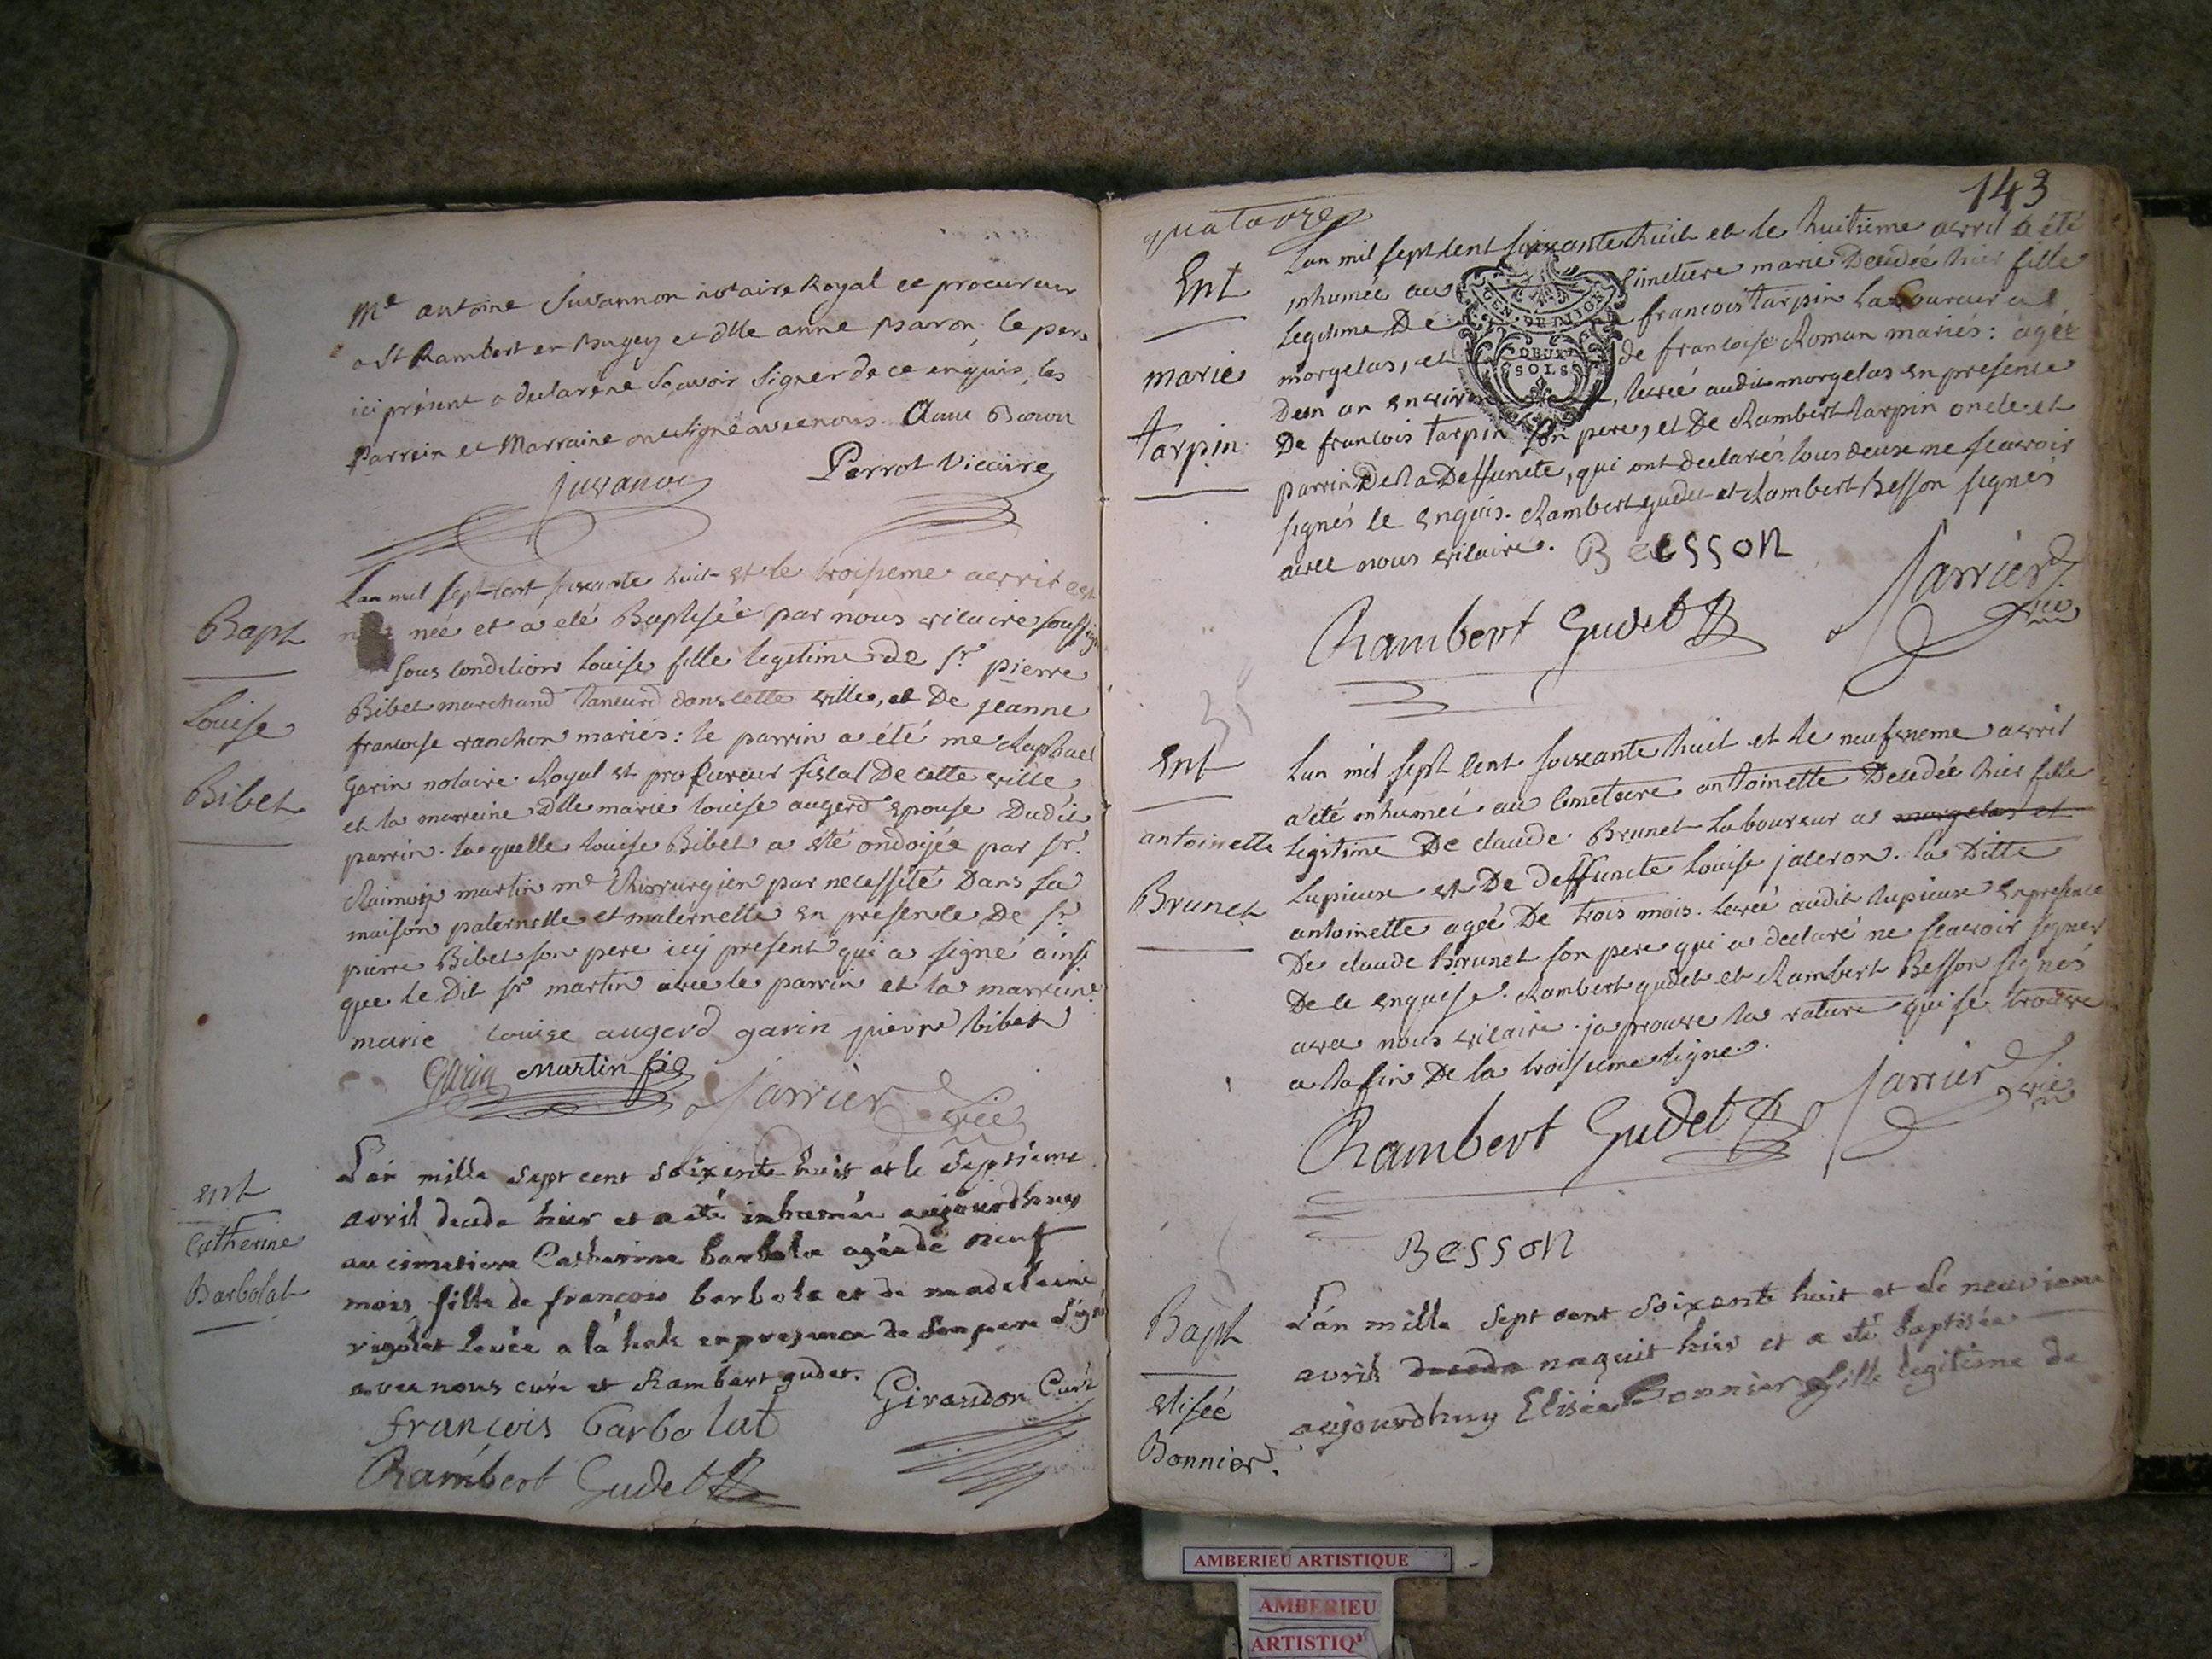 Me antoine Juvannon notaire Royal et procureur
a St Rambert en Bugey et dlle anne Baron. le pere
ici présent a declaré ne Scavoir Signer de ce enquis, les
Parrein et Marraine ont Signé avec nous. Anne Baron
juvanon
Perrot Vicaire
Bapt
Louise
Bibet
Lan mil sept cent soixante huit et le troisieme avril est
née et a eté Baptisée par nous vicaire soussigné
sous condition Louise fille legitime de sr. pierre
Bibet marchand taneur dans cette ville, et De jeanne
francoise vanchon mariés: le parrin a été me Raphael
Garin notaire Royal et procureur fiscal De cette ville
et la marreine dlle marie louise augerd epouse Dudit
parrin. laquelle louise Bibet a été ondoyée par sr.
Raimon martin me Chirurgien par necessité Dans sa
maison paternelle et maternelle en presence De sr
pierre Bibet son pere icy present qui a signé ainsi
que le Dit sr martin avec le parrin et la marreine
marie louise augerd garin pierre bibet
Garin Martin fis
Jarrier vic
ent
Catherine
Barbolat
L'an mille sept cent soixante huit et le septieme
avril deceda hier et a été inhumée aujourdhuy
au cimetiere Catherine barbola agée de neuf
mois fille de francois barbola et de madelaine
rigolet levée a la hale en presence de son pere Signé
avec nous curé et Rambert gudet.
Giraudon Curé
françois barbolat
Rambert Gudet
143
quatorze
Ent
marie
tarpin
Lan mil sept cent soixante huit et le huitieme avril a été
inhumée au Cimetiere marie Decedée hier fille
legitime De francois tarpin laboureur a
morgelas, et de francoise Roman mariés: agée
D'un an environ, levée audit morgelas en presence
De francois tarpin son pere, et De Rambert tarpin oncle et
parrin De la Deffuncte, qui ont declarés tous deux ne scavoir
signés de enquis. Rambert gudet et Rambert Besson signés
avec nous vicaire. BeSSON
Rambert Gudet
Jarrier vic
GEN. DE DIJON
DEUX
SOLS
Ent
antoinette
Brunet
Lan mil sept cent soixante huit et le neufvieme avril
a été inhumeé au Cimetiere antoinette Decedée hier fille
legitime De claude Brunet laboureur a morgelas et
lupieux et De deffuncte Louise jaceron. la Ditte
antoinette agée De trois mois. levée audit lupieux en presence
De claude Brunet son pere qui a declaré ne scavoir signer
De ce enquise. Rambert gudet et Rambert Besson signés
avec nous vicaire. japrouve la rature qui se trouve
a la fin De la troisieme ligne.
Rambert Gudet
Jarrier vic
BeSSON
Bapt
elisée
Bonnier.
L'an mille sept cent soixante huit et le neuvieme
avril deceda naquit hier et a été baptisée
aujourdhuy Elisée Bonnier fille legitime de
AMBERIEU ARTISTIQUE
AMBERIEU
ARTISTIQ